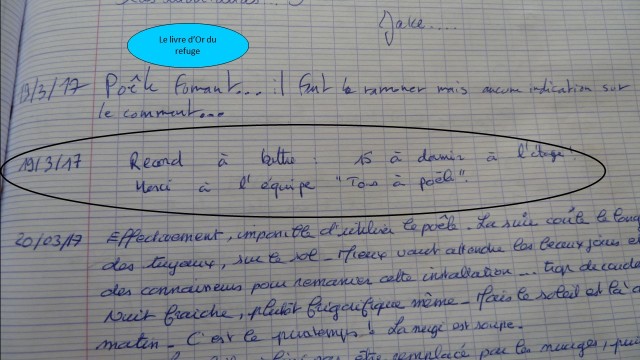 Jake....
Le livre d'Or du
refuge
19/3/17 Poêle fumant... il faut le ramoner mais aucune indication sur
le comment...
19/3/17 Record à battre : 15 à dormir à l'étage !
Merci à l'équipe "Tous à poêle".
20/03/17 Effectivement, impossible d'utiliser le poêle. La suie coule le long
des tuyaux, sur le sol - Mieux vaut attendre les beaux jours et
des connaisseurs pour remanier cette installation ... trop de
Nuit fraîche, plutôt frigorifique même - Mais le soleil est là
matin - C'est le printemps ! La neige est soupe.
être remplacé par les nuages,